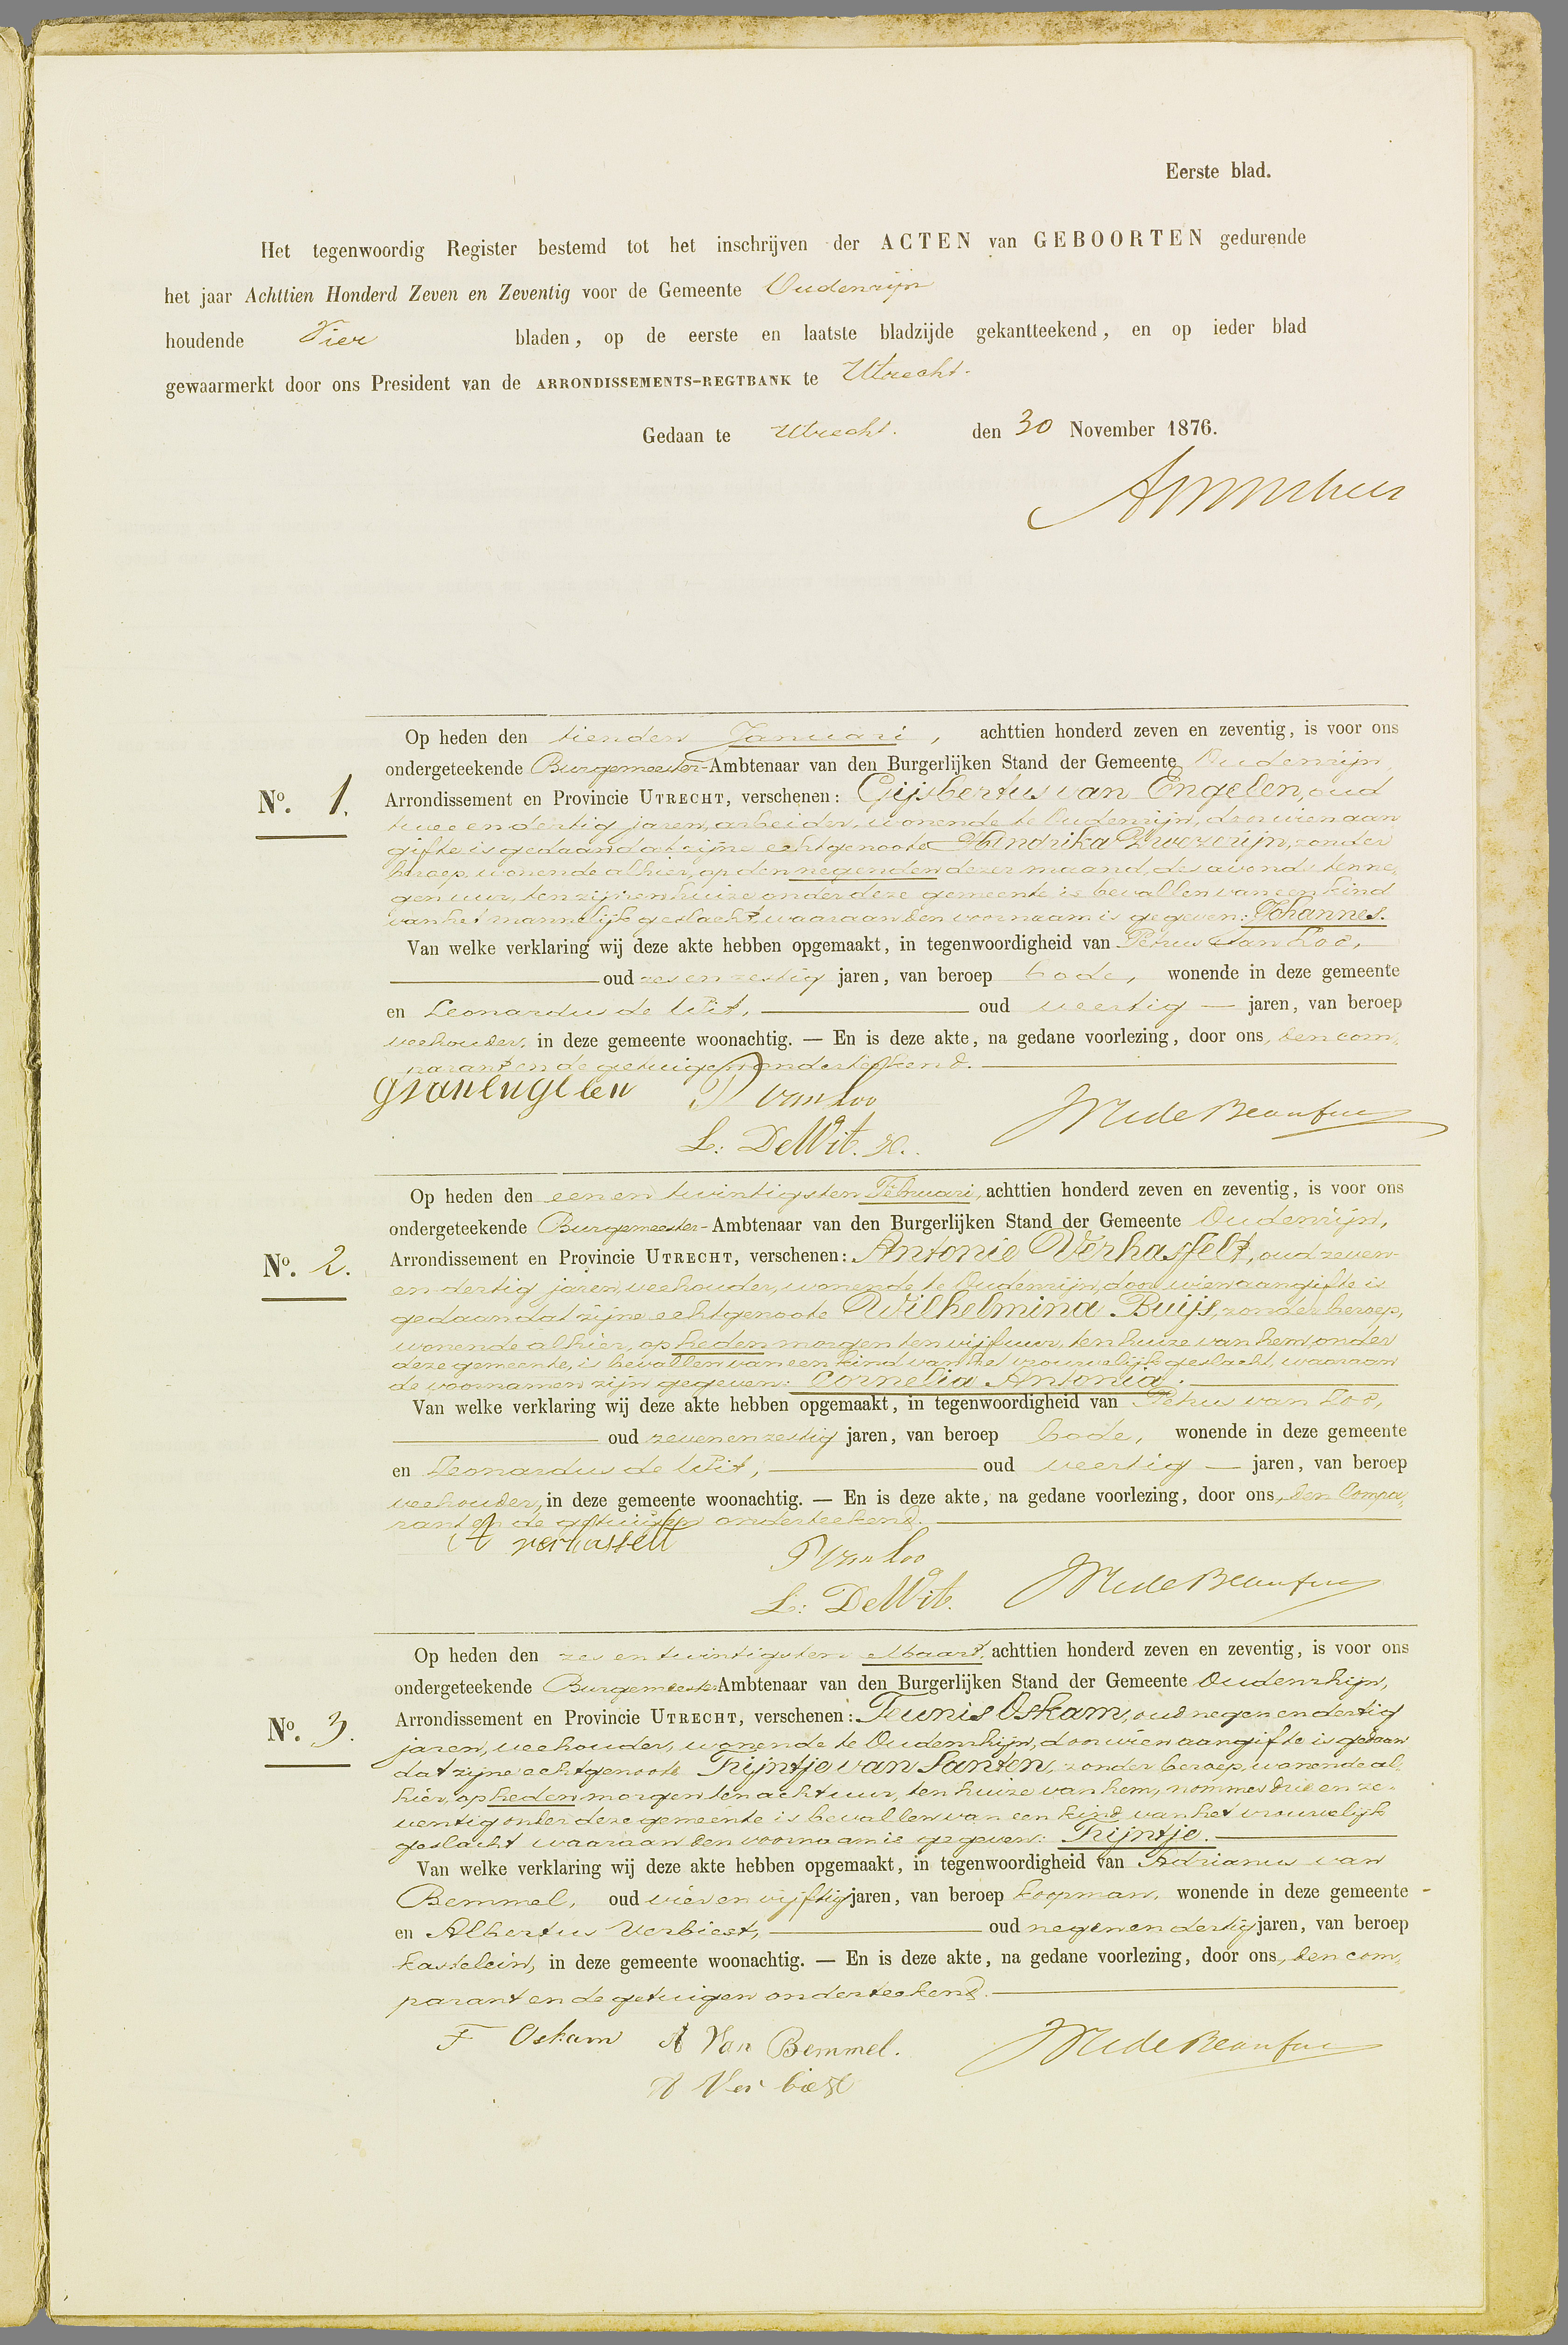 Eerste blad.
Het tegenwoordig Register bestemd tot het inschrijven der ACTEN van GEBOORTEN gedurende
het jaar Achttien Honderd Zeven en Zeventig voor de Gemeente Oudenrijn
houdende Vier bladen, op de eerste en laatste bladzijde gekantteekend, en op ieder blad
gewaarmerkt door ons President van de ARRONDISSEMENTS-REGTBANK te Utrecht.
Gedaan te Utrecht. den 30 November 1876.
Op heden den tienden Januari, achttien honderd zeven en zeventig, is voor ons
ondergeteekende Burgemeester-Ambtenaar van den Burgerlijken Stand der Gemeente Oudenrijn,
No. 1. Arrondissement en Provincie UTRECHT, verschenen: Gijsbertus van Engelen, oud
twee en dertig jaren, arbeider, wonende te Oudenrijn, door wien aan
gifte is gedaan dat zijne echtgenoote Hendrika zonder
beroep, wonende alhier, op den negenden dezer maand, des avonds ten ne,
gen uur, ten zijnen huize onder deze gemeente is bevallen van een kind
van het mannelijk geslacht, waaraan den voornaam is gegeven: Johannes.
Van welke verklaring wij deze akte hebben opgemaakt, in tegenwoordigheid van Petrus van Loo,
oud zes en zestig jaren, van beroep bode, wonende in deze gemeente
en Leonardus de Wit, oud veertig jaren, van beroep
veehouder, in deze gemeente woonachtig. — En is deze akte, na gedane voorlezing, door ons, den com,
parant en de getuigen onderteekend.
G van Engelen P van Loo
L: De Wit.
Op heden den een en twintigsten Februari, achttien honderd zeven en zeventig, is voor ons
ondergeteekende Burgemeester-Ambtenaar van den Burgerlijken Stand der Gemeente Oudenrijn,
No. 2. Arrondissement en Provincie UTRECHT, verschenen: Antonie Verhasselt, oud zeven-
en dertig jaren, veehouder, wonende te Oudenrijn, door wien aangifte is
gedaan dat zijne echtgenoote Wilhelmina Buijs, zonder beroep,
wonende alhier, op heden morgen ten vijf uur, ten huize van hem, onder
deze gemeente, is bevallen van een kind van het vrouwelijk geslacht, waaraan
de voornamen zijn gegeven: Cornelia Antonia.
Van welke verklaring wij deze akte hebben opgemaakt, in tegenwoordigheid van Petrus van Loo,
oud zeven en zestig jaren, van beroep bode, wonende in deze gemeente
en Leonardus de Wit, oud veertig jaren, van beroep
veehouder, in deze gemeente woonachtig. — En is deze akte, na gedane voorlezing, door ons, den Compa,
rant en de getuigen onderteekend.
A verhasselt P van Loo
L: De Wit.
Op heden den zes en twintigsten Maart, achttien honderd zeven en zeventig, is voor ons
ondergeteekende Burgemeester Ambtenaar van den Burgerlijken Stand der Gemeente Oudenrhijn,
No. 3. Arrondissement en Provincie UTRECHT, verschenen: Teunis Oskam, oud negen en dertig
jaren, veehouder, wonende te Oudenrhijn, door wien aangifte is gedaan
dat zijne echtgenoote Trijntje van Santen, zonder beroep, wonende al,
hier, op heden morgen ten acht uur, ten huize van hem, nommer drie en ze-
ventig onder deze gemeente is bevallen van een kind van het vrouwelijk
geslacht waaraan den voornaam is gegeven: Trijntje.
Van welke verklaring wij deze akte hebben opgemaakt, in tegenwoordigheid van Adrianus van
Bemmel, oud vier en vijftig jaren, van beroep koopman, wonende in deze gemeente
en Albertus Verbiest, oud negen en dertig jaren, van beroep
kastelein, in deze gemeente woonachtig. — En is deze akte, na gedane voorlezing, door ons, den com,
parant en de getuigen onderteekend.
T Oskam A Van Bemmel.
A Verbiest